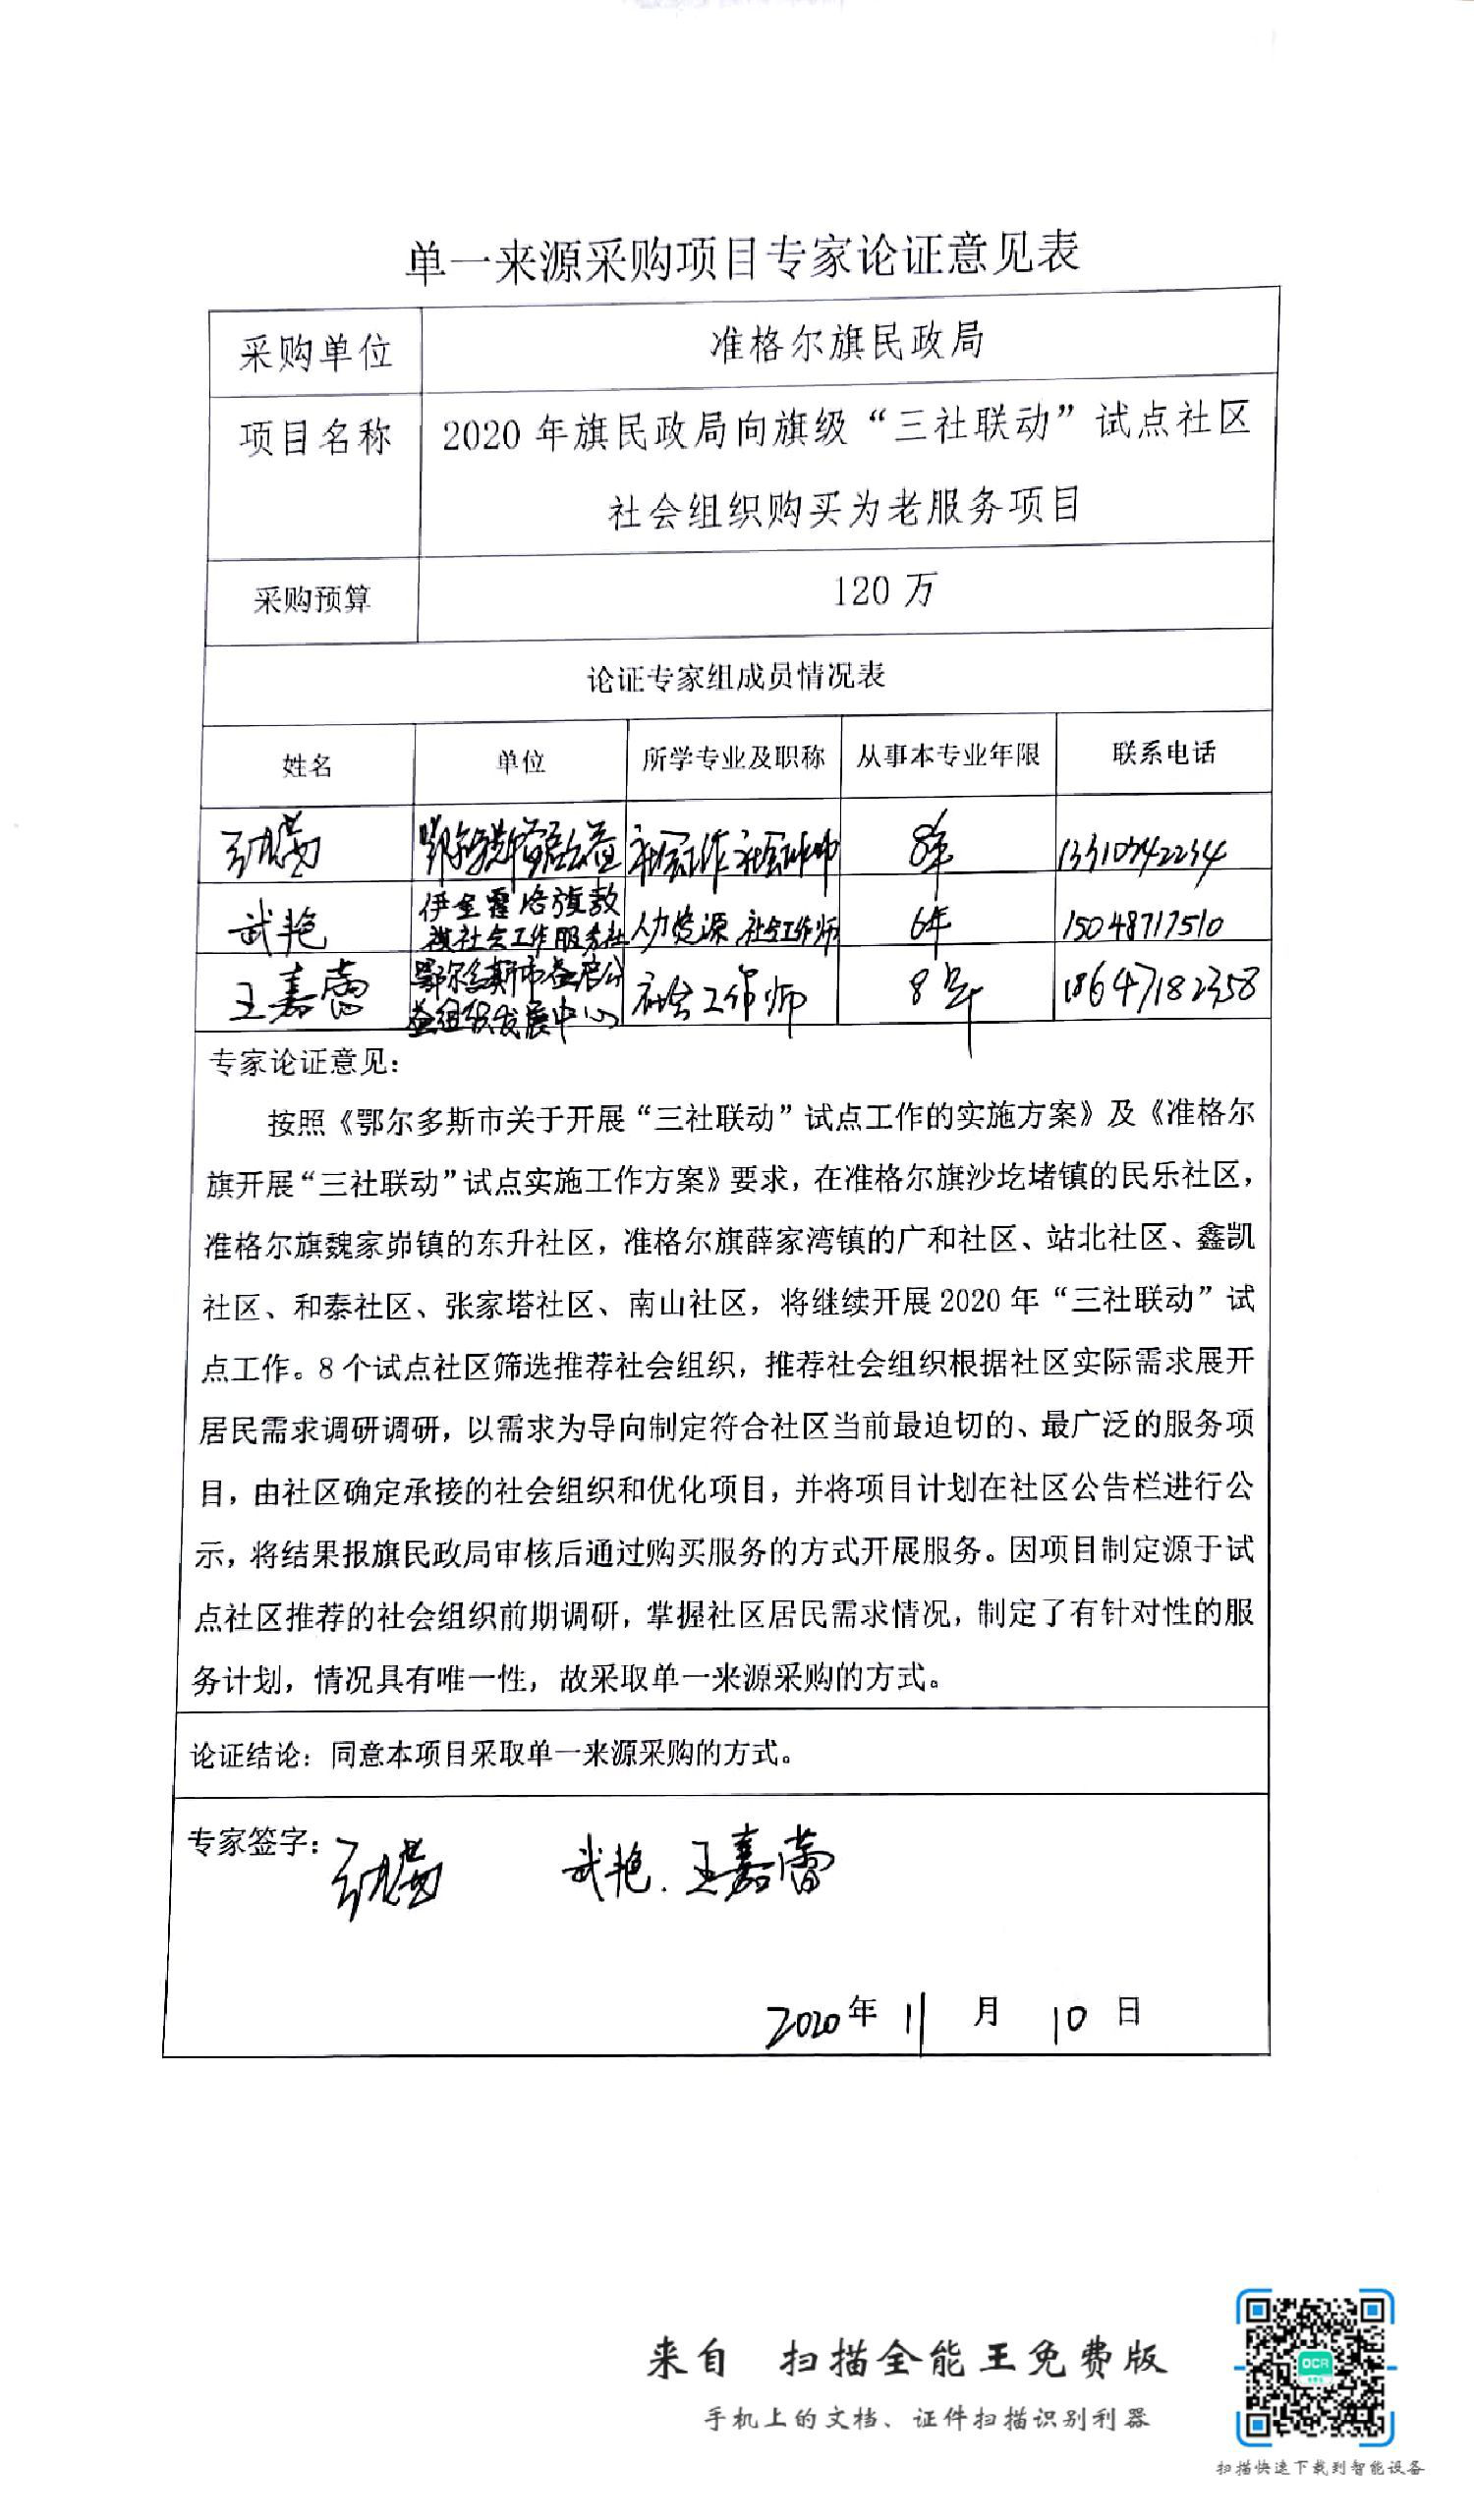 单一来源采购项目专家论证意见表
采购单位 准格尔旗民政局
项目名称 2020 年旗民政局向旗级“三社联动”试点社区
社会组织购买为老服务项目
采购预算 120 万
论证专家组成员情况表
姓名 单位 所学专业及职称 从事本专业年限 联系电话
社会工作 社会工作师 8年 13310342234
武艳 伊金霍洛旗敖
社会工作服务社 人力资源 社会工作师 6年 15048717510
王嘉蕾 鄂尔多斯市益启公
益组织发展中心 社会工作师 8年 18647182358
专家论证意见：
按照《鄂尔多斯市关于开展“三社联动”试点工作的实施方案》及《准格尔
旗开展“三社联动”试点实施工作方案》要求，在准格尔旗沙圪堵镇的民乐社区，
准格尔旗魏家峁镇的东升社区，准格尔旗薛家湾镇的广和社区、站北社区、鑫凯
社区、和泰社区、张家塔社区、南山社区，将继续开展 2020 年“三社联动”试
点工作。8 个试点社区筛选推荐社会组织，推荐社会组织根据社区实际需求展开
居民需求调研调研，以需求为导向制定符合社区当前最迫切的、最广泛的服务项
目，由社区确定承接的社会组织和优化项目，并将项目计划在社区公告栏进行公
示，将结果报旗民政局审核后通过购买服务的方式开展服务。因项目制定源于试
点社区推荐的社会组织前期调研，掌握社区居民需求情况，制定了有针对性的服
务计划，情况具有唯一性，故采取单一来源采购的方式。
论证结论：同意本项目采取单一来源采购的方式。
专家签字： 武艳. 王嘉蕾
2020 年 11 月 10 日
来自 扫描全能王免费版
手机上的文档、证件扫描识别利器
OCR
扫描快速下载到智能设备